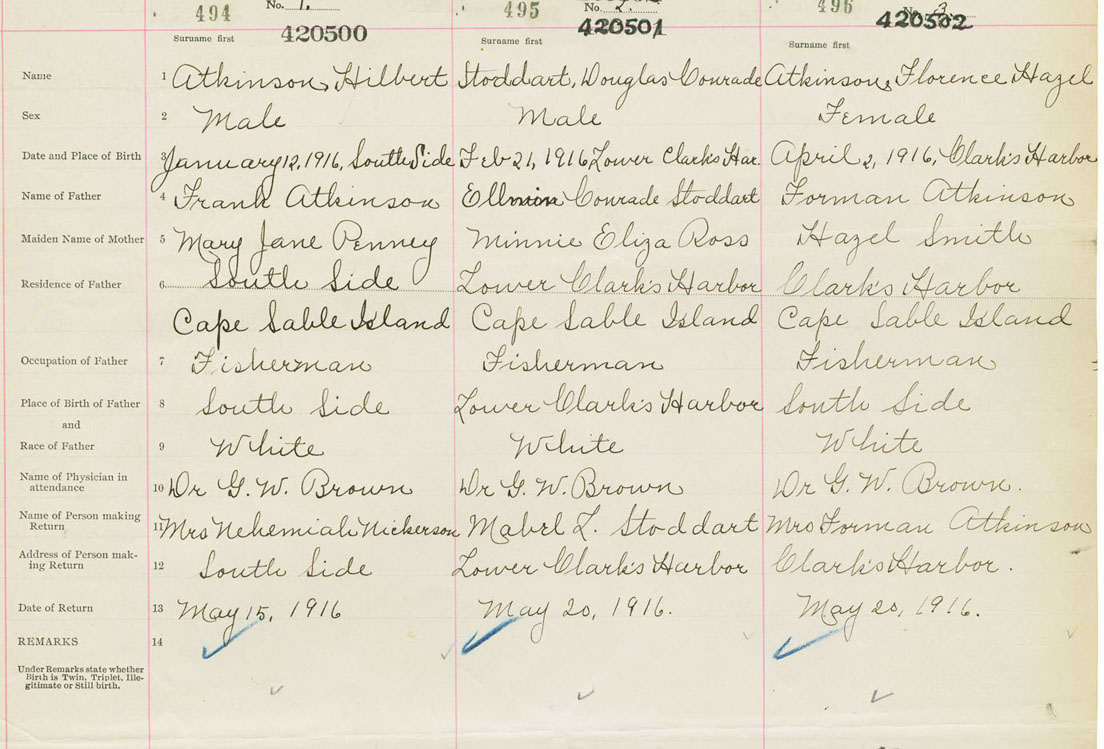 494 No. 1. 495 No. 2. 496 No. 3.
420500 420501 420502
Surname first Surname first Surname first
Name 1 Atkinson, Hilbert Stoddart, Douglas Conrade Atkinson, Florence Hazel
Sex 2 Male Male Female
Date and Place of Birth 3 January 12, 1916, South Side Feb 21, 1916 Lower Clark's Har. April 2, 1916, Clark's Harbor
Name of Father 4 Frank Atkinson Conrade Stoddart Forman Atkinson
Maiden Name of Mother 5 Mary Jane Penney Minnie Eliza Ross Hazel Smith
Residence of Father 6 South Side Lower Clark's Harbor Clark's Harbor
Cape Sable Island Cape Sable Island Cape Sable Island
Occupation of Father 7 Fisherman Fisherman Fisherman
Place of Birth of Father 8 South Side Lower Clark's Harbor South Side
and
Race of Father 9 White White White
Name of Physician in
attendance 10 Dr G. W. Brown Dr G. W. Brown Dr G. W. Brown.
Name of Person making
Return 11 Mrs Nehemiah Nickerson Mabel L. Stoddart Mrs Forman Atkinson
Address of Person mak-
ing Return 12 South Side Lower Clark's Harbor Clark's Harbor.
Date of Return 13 May 15, 1916 May 20, 1916. May 20, 1916.
REMARKS 14
Under Remarks state whether
Birth is Twin, Triplet, Ille-
gitimate or Still birth.